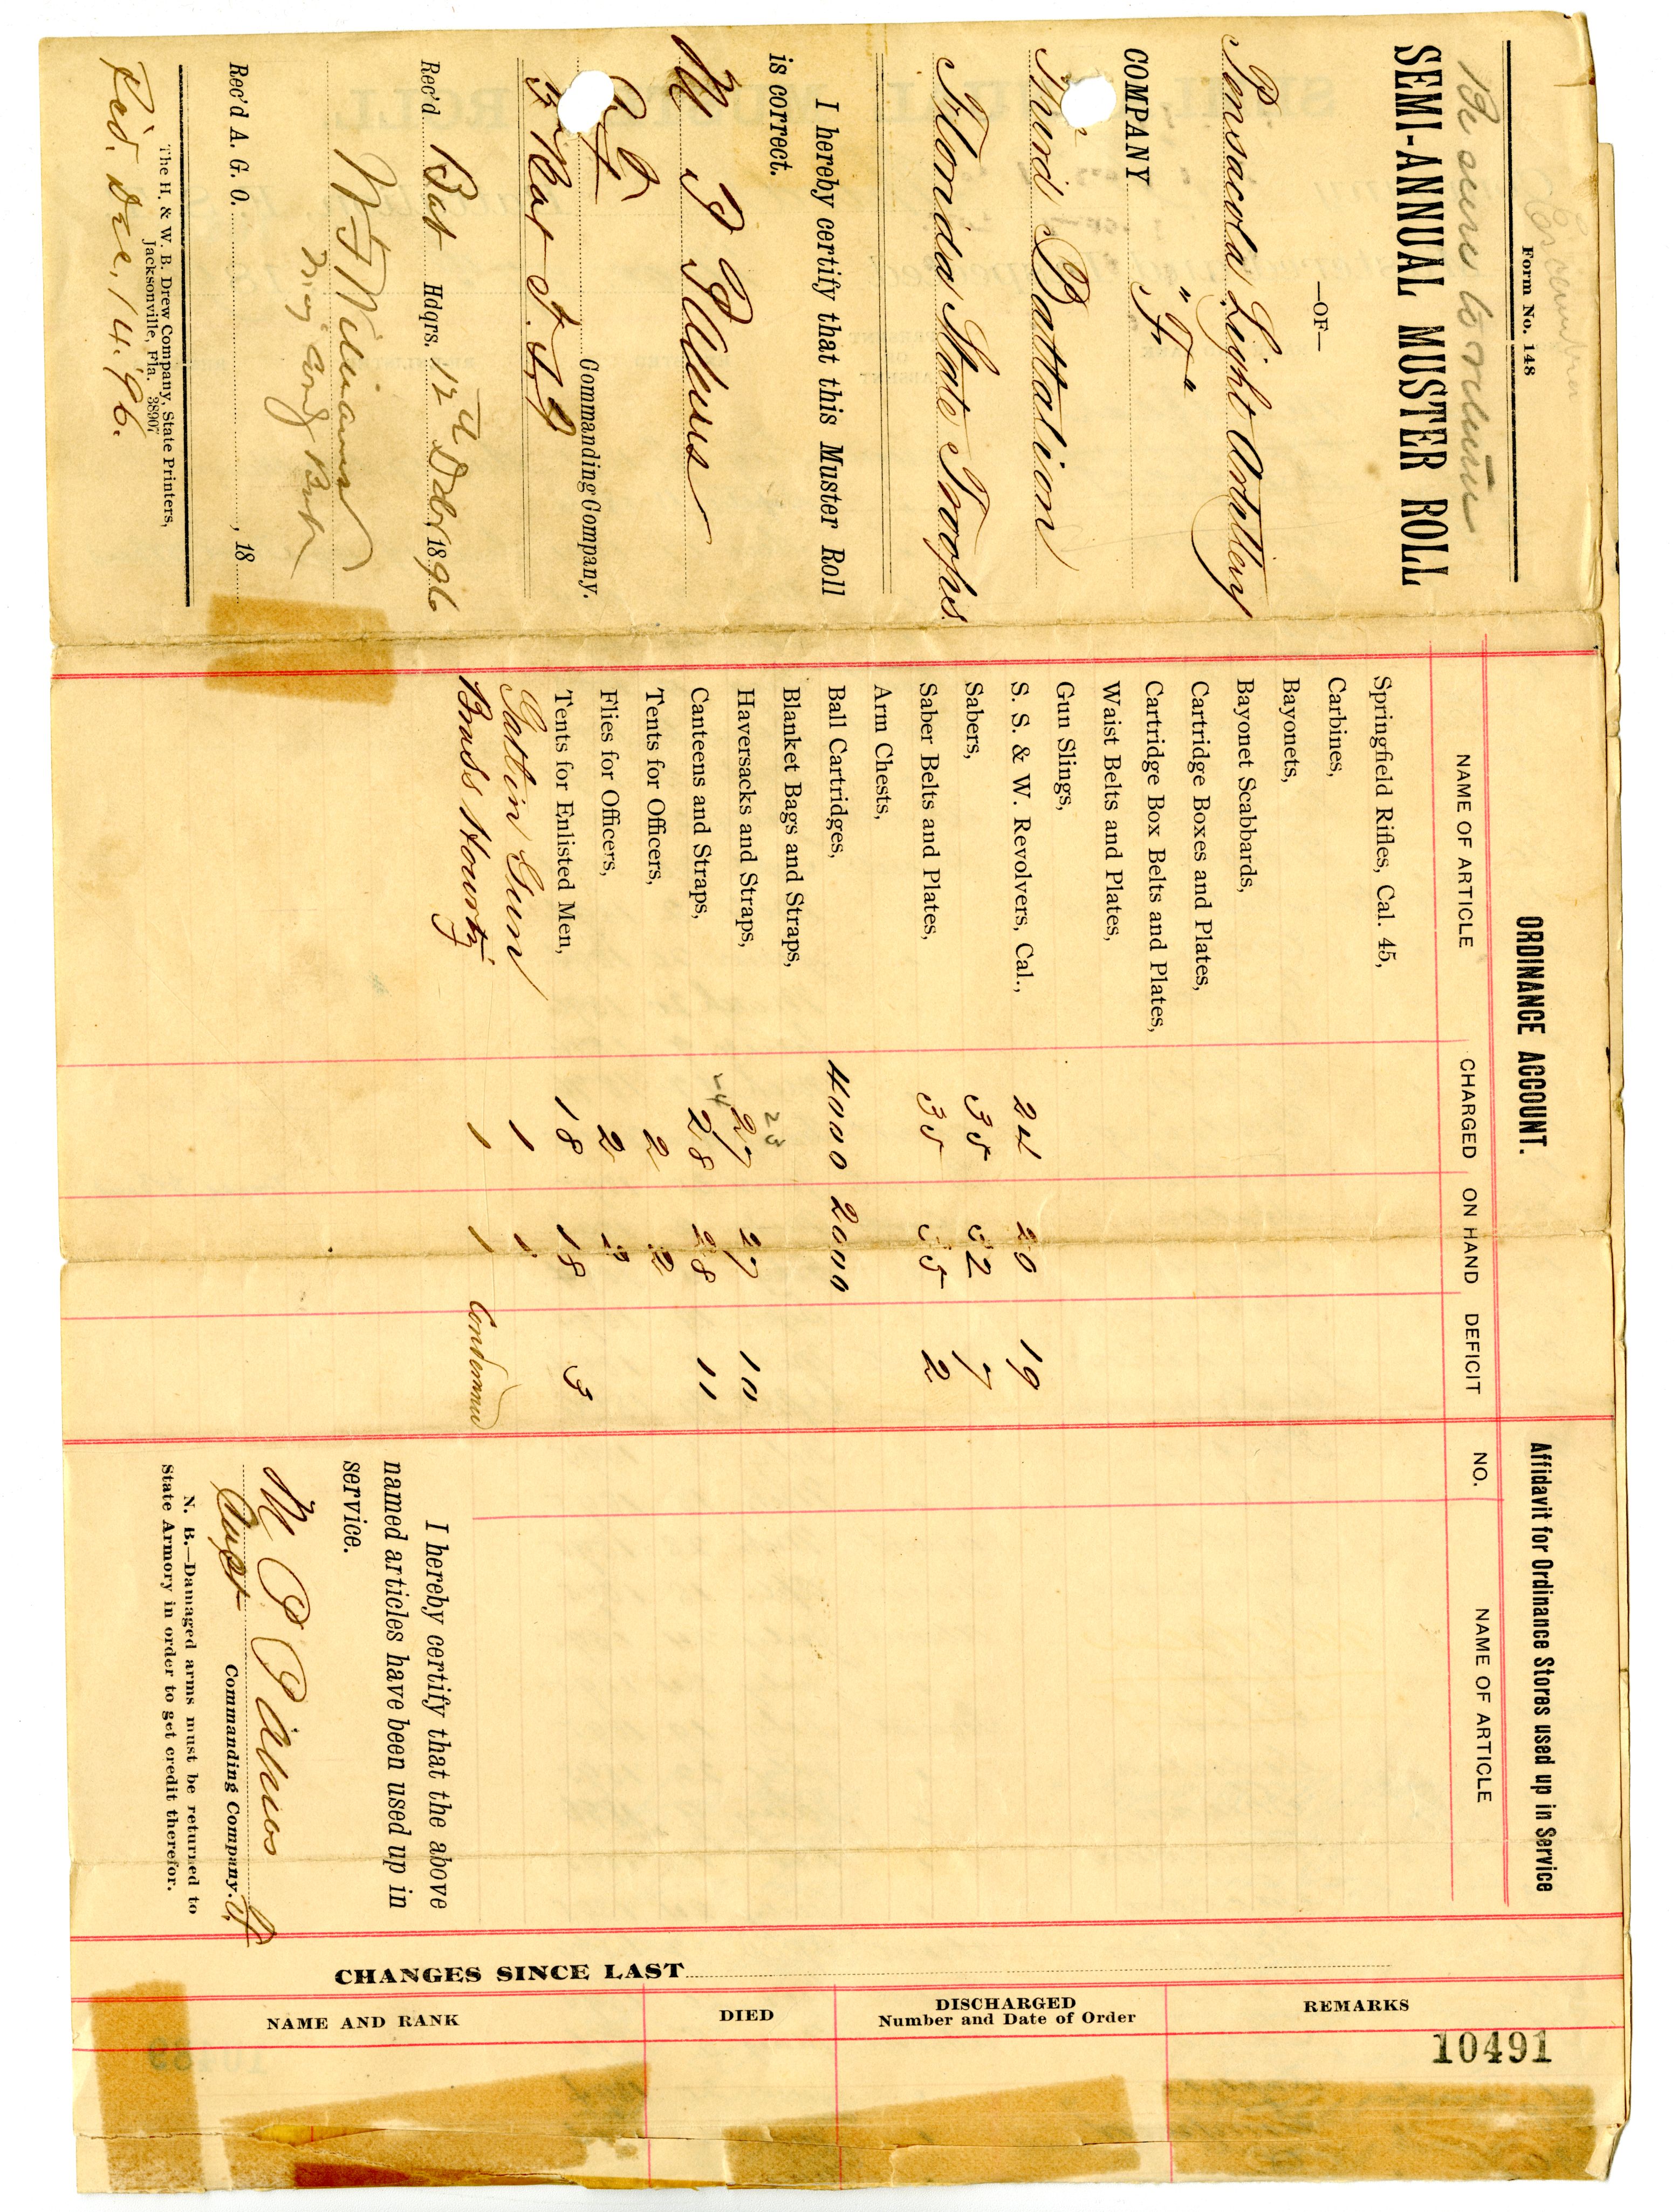 Escambia
Form No. 148
Be sure to return
SEMI-ANNUAL MUSTER ROLL
—OF—
Pensacola Light Artillery
COMPANY " F "
Third Battalion
Florida State Troops.
I hereby certify that this Muster Roll
is correct.
Commanding Company.
3 Bat F. S. T
Rec'd Bat Hdqrs. 12th Dcbr 1896
W F Williams
Maj Comdg Batn
Rec'd A. G. O. , 18
The H. & W. B. Drew Company, State Printers,
Jacksonville, Fla. 38907
Rec'd. Dec. 14. '96.
ORDINANCE ACCOUNT.
NAME OF ARTICLE CHARGED ON HAND DEFICIT
Springfield Rifles, Cal. 45,
Carbines,
Bayonets,
Bayonet Scabbards,
Cartridge Boxes and Plates,
Cartridge Box Belts and Plates,
Waist Belts and Plates,
Gun Slings,
S. S. & W. Revolvers, Cal., 20 19
Sabers, 35 32 7
Saber Belts and Plates, 35 35 2
Arm Chests,
Ball Cartridges, 4000 2000
Blanket Bags and Straps,
23
Haversacks and Straps, 27 27 10
24
Canteens and Straps, 28 28 11
Tents for Officers, 2 2
Flies for Officers, 2 2
Tents for Enlisted Men, 18 18 3
Gatlin Gun 1 1
Brass Howtz 1 1 Condemned
Affidavit for Ordinance Stores used up in Service
NO. NAME OF ARTICLE
I hereby certify that the above
named articles have been used up in
service.
Capt Commanding Company.
N. B.—Damaged arms must be returned to
State Armory in order to get credit therefor.
CHANGES SINCE LAST
NAME AND RANK DIED DISCHARGED
Number and Date of Order REMARKS
10491